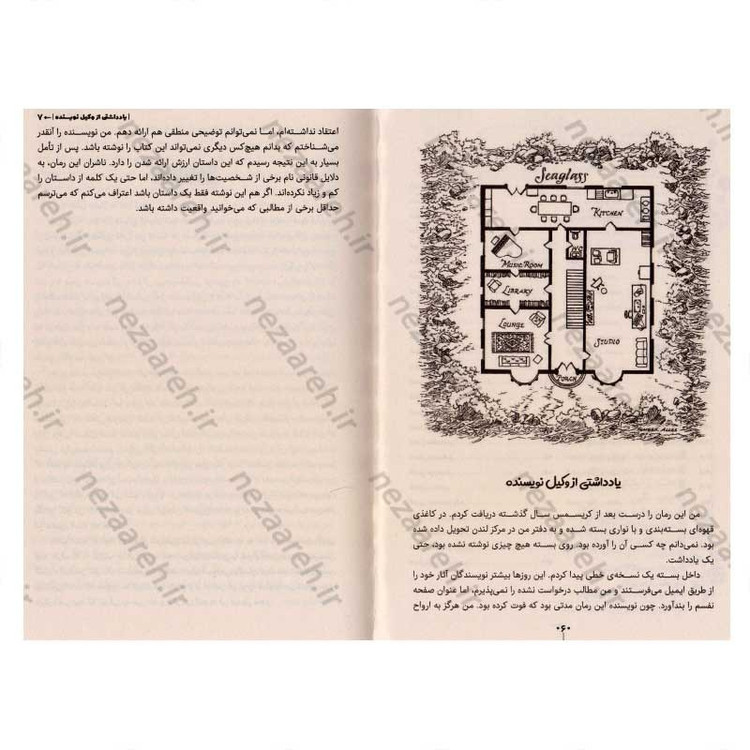 Seaglass
KITCHEN
MUSIC ROOM
LIBRARY
LOUNGE
STUDIO
PORCH
یادداشتی از وکیل نویسنده
من این رمان را درست بعد از کریسمس سال گذشته دریافت کردم. در کاغذی
قهوه‌ای بسته‌بندی و با نواری بسته شده و به دفتر من در مرکز لندن تحویل داده شده
بود. نمی‌دانم چه کسی آن را آورده بود. روی بسته هیچ چیزی نوشته نشده بود، حتی
یک یادداشت.
داخل بسته یک نسخه‌ی خطی پیدا کردم. این روزها بیشتر نویسندگان آثار خود را
از طریق ایمیل می‌فرستند و من مطالب درخواست نشده را نمی‌پذیرم، اما عنوان صفحه
نفسم را بندآورد. چون نویسنده این رمان مدتی بود که فوت کرده بود. من هرگز به ارواح
۰۶۰
| یادداشتی از وکیل نویسنده | ۷۰
اعتقاد نداشته‌ام، اما نمی‌توانم توضیحی منطقی هم ارائه دهم. من نویسنده را آنقدر
می‌شناختم که بدانم هیچ‌کس دیگری نمی‌تواند این کتاب را نوشته باشد. پس از تأمل
بسیار به این نتیجه رسیدم که این داستان ارزش ارائه شدن را دارد. ناشران این رمان، به
دلایل قانونی نام برخی از شخصیت‌ها را تغییر داده‌اند، اما حتی یک کلمه از داستان را
کم و زیاد نکرده‌اند. اگر هم این نوشته فقط یک داستان باشد اعتراف می‌کنم که می‌ترسم
حداقل برخی از مطالبی که می‌خوانید واقعیت داشته باشد.
nezaareh.ir
nezaareh.ir
nezaareh.ir
nezaareh.ir
nezaareh.ir
nezaareh.ir